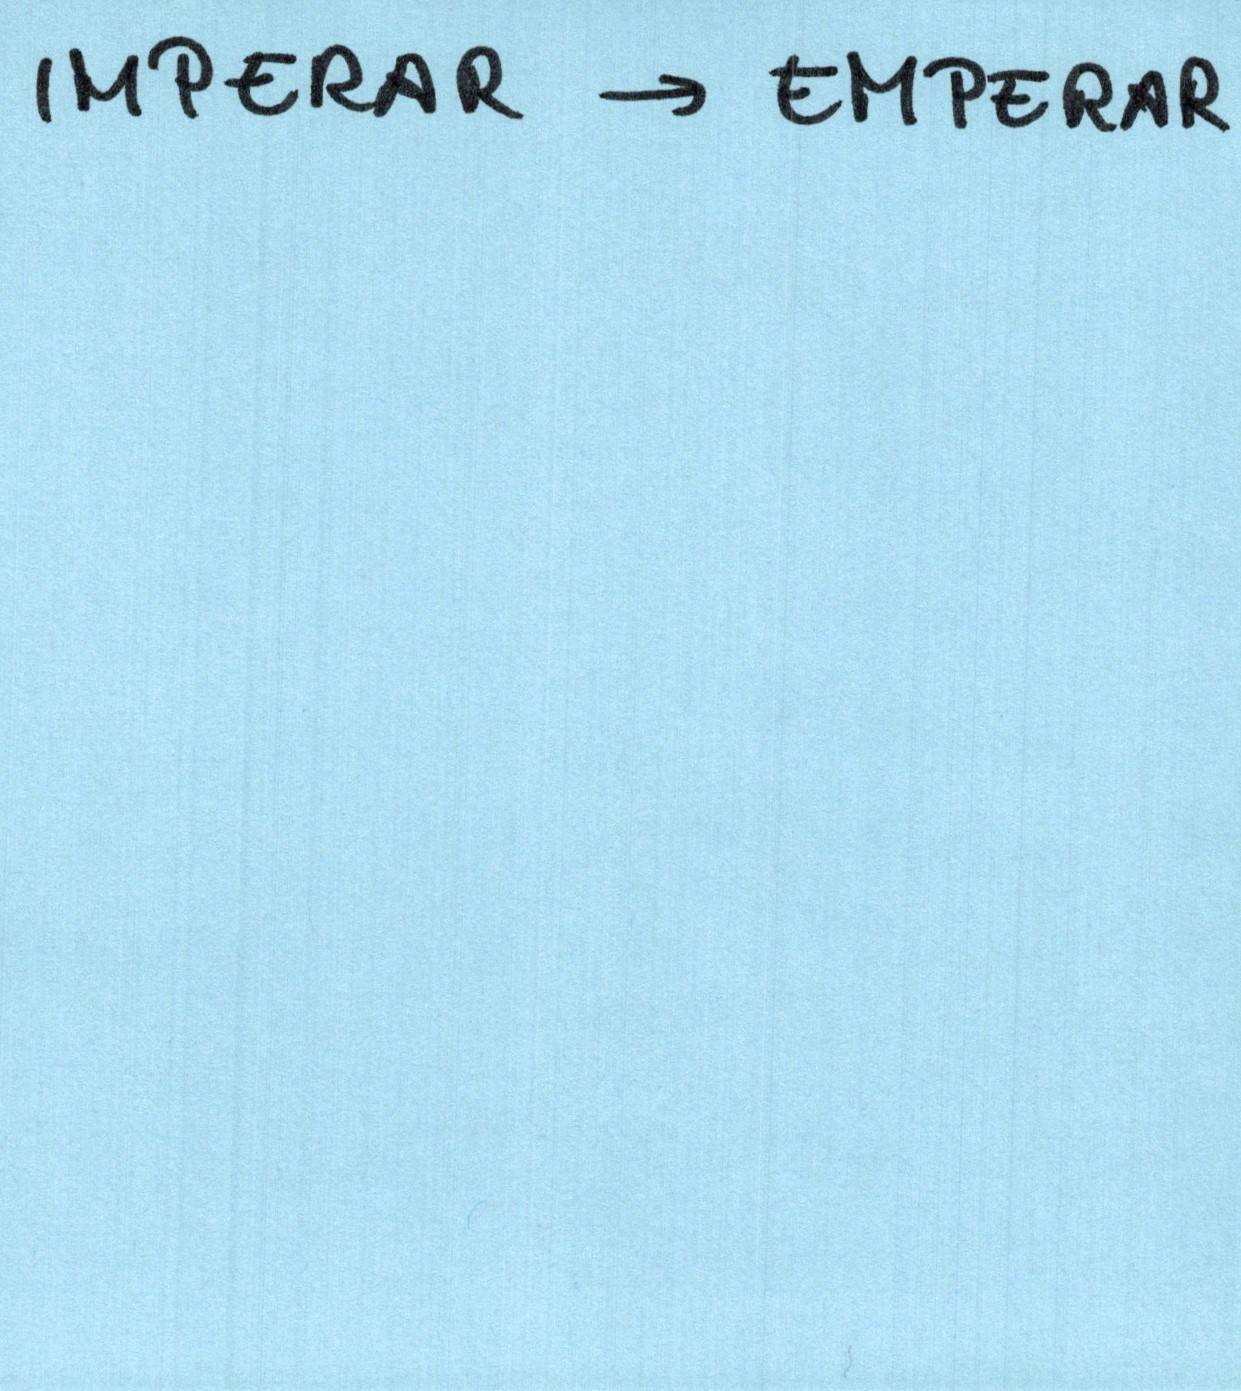 IMPERAR → EMPERAR